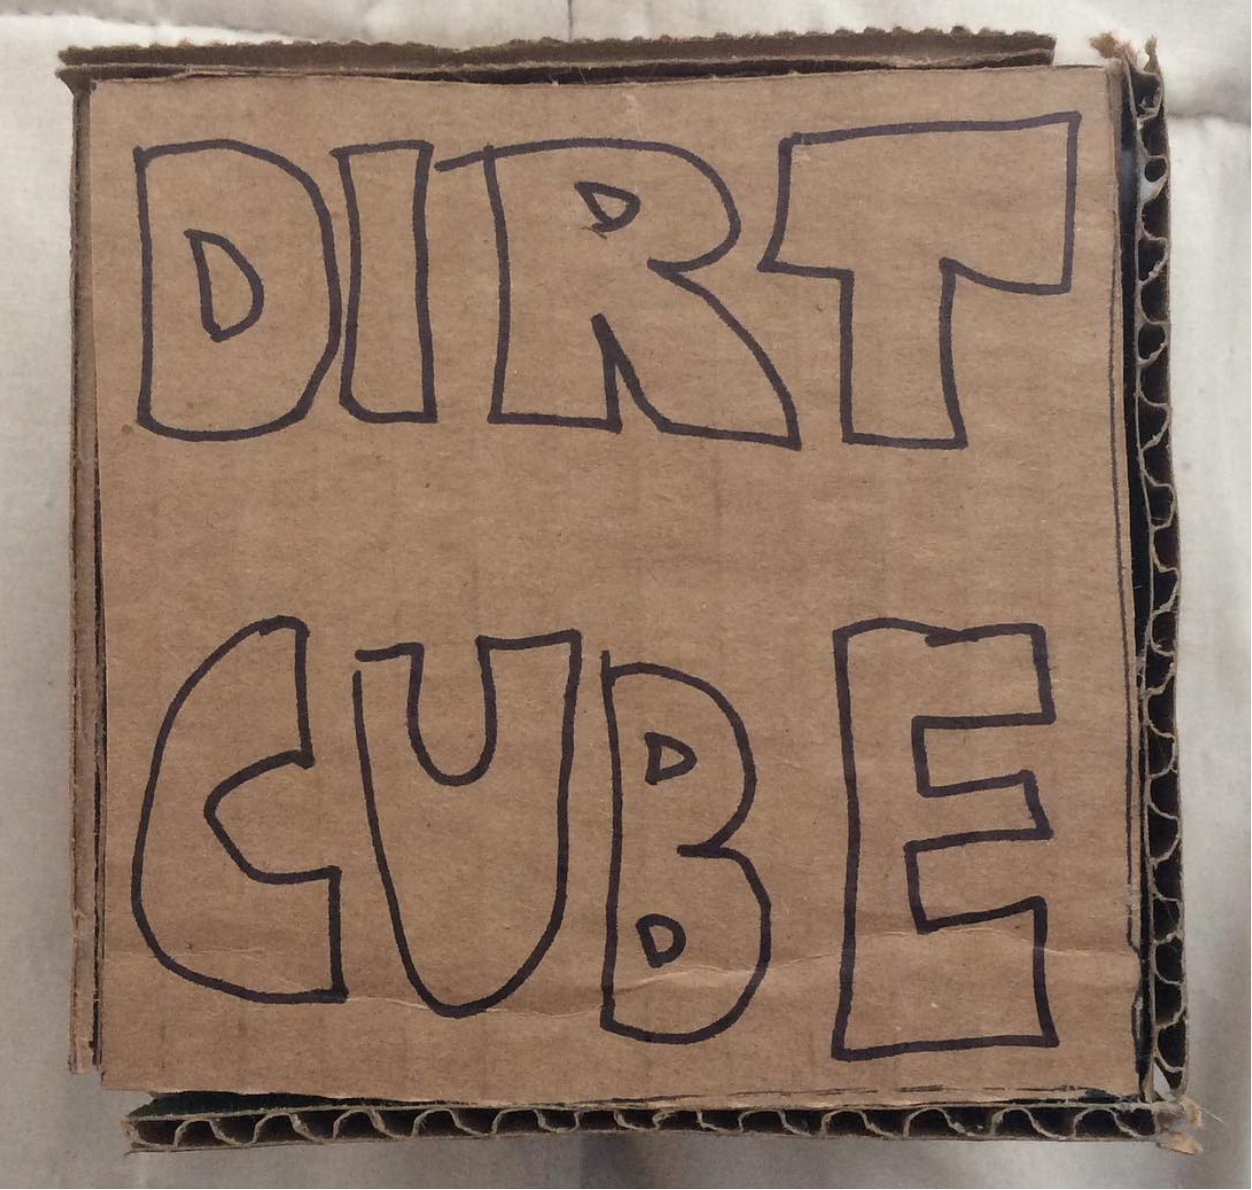 DIRT
CUBE